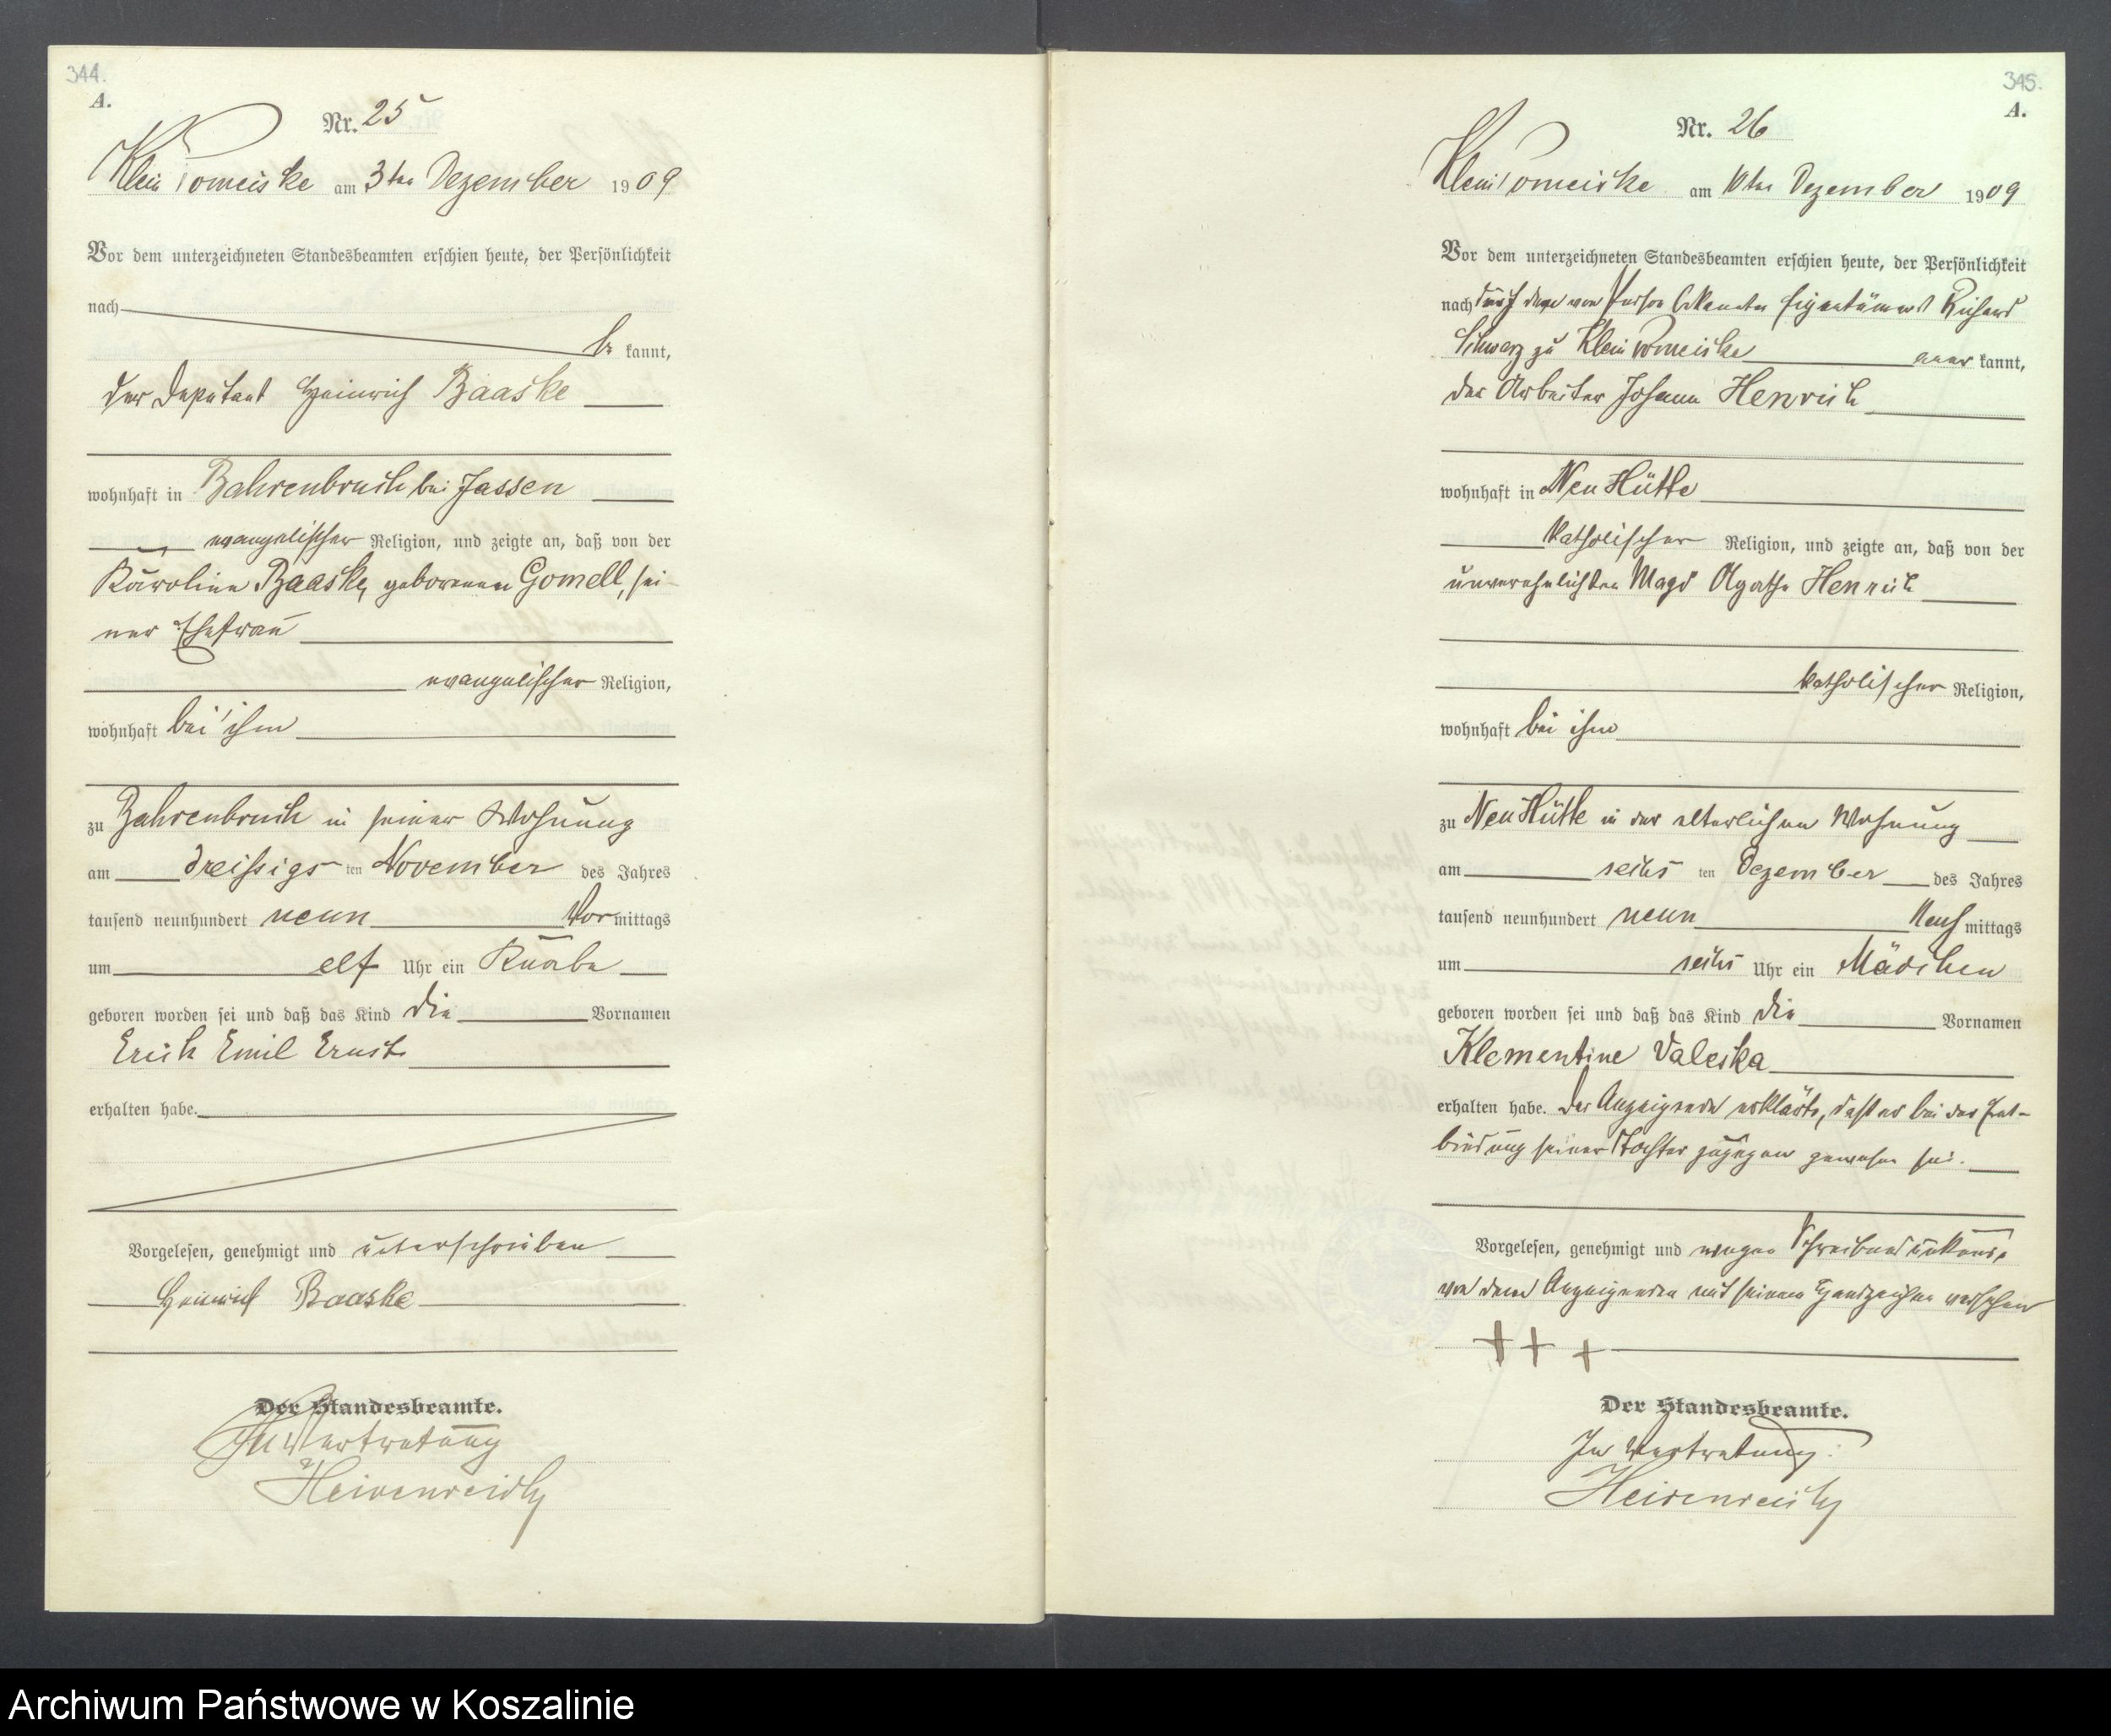 344.
A.
Nr. 25
Klein Pomeiske am 3ten Dezember 1909
Vor dem unterzeichneten Standesbeamten erschien heute, der Persönlichkeit
nach
be kannt,
der Deputant Heinrich Baaske
wohnhaft in Bahrenbruch bei Jassen
evangelischer Religion, und zeigte an, daß von der
Karoline Baaske, geborenen Gomell, sei-
ner Ehefrau
evangelischer Religion,
wohnhaft bei ihm
zu Bahrenbruch in seiner Wohnung
am dreißigs ten November des Jahres
tausend neunhundert neun Vormittags
um elf Uhr ein Knabe
geboren worden sei und daß das Kind die Vornamen
Erich Emil Ernst
erhalten habe.
Vorgelesen, genehmigt und unterschrieben
Heinrich Baaske
Der Standesbeamte.
In Vertretung
Heidenreich
345.
A.
Nr. 26
Klein Pomeiske am 10ten Dezember 1909
Vor dem unterzeichneten Standesbeamten erschien heute, der Persönlichkeit
nach durch den von Person bekannten Eigentümer Richard
Schwarz zu Klein Pomeiske aner kannt,
der Arbeiter Johann Henrich
wohnhaft in Neu Hütte
katholischer Religion, und zeigte an, daß von der
unverehelichten Magd Agathe Henrich
katholischer Religion,
wohnhaft bei ihm
zu Neu Hütte in der elterlichen Wohnung
am sechs ten Dezember des Jahres
tausend neunhundert neun Nachmittags
um sechs Uhr ein Mädchen
geboren worden sei und daß das Kind die Vornamen
Klementine Valeska
erhalten habe. Der Anzeigende erklärte, daß er bei der Ent-
bindung seiner Tochter zugegen gewesen sei.
Vorgelesen, genehmigt und wegen Schreibensunkunde
von dem Anzeigenden mit seinem Handzeichen versehen
+ + +
Der Standesbeamte.
In Vertretung:
Heidenreich
Archiwum Państwowe w Koszalinie